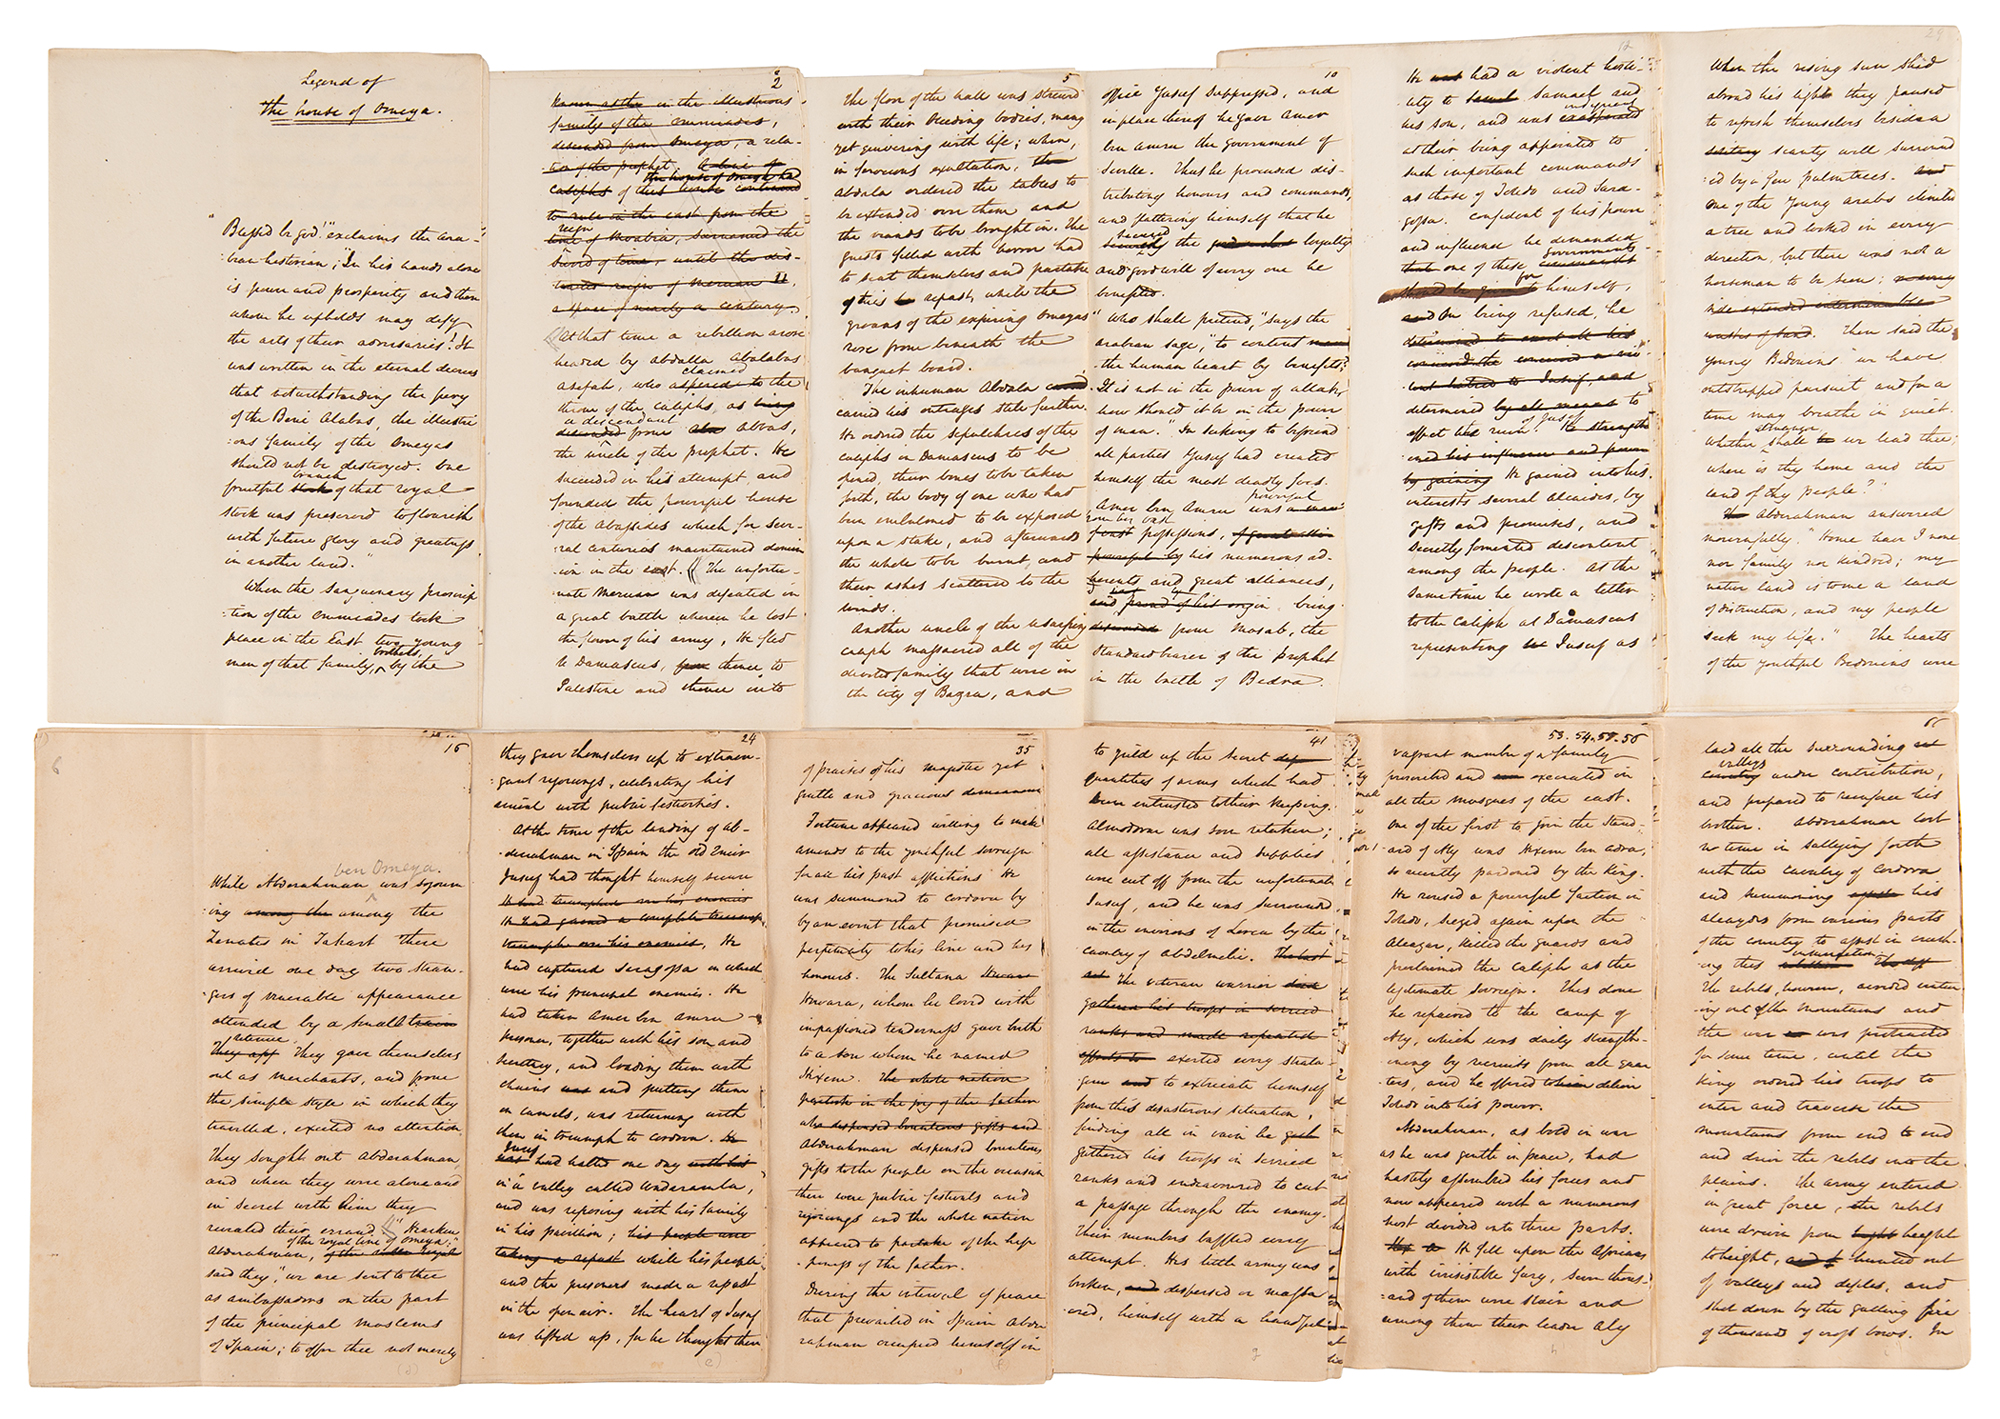 Legend of
the house of Omeya.
"Blessed be God!" exclaims the Ara-
:bian historian; "In his hands alone
is power and prosperity and those
whom he upholds may defy
the acts of their adversaries! It
was written in the eternal decrees
that notwithstanding the fury
of the Beni Alabas, the illustri
:ous family of the Omeyas
should not be destroyed. One
branch
fruitful stock of that royal
stock was preserved to flourish
with future glory and greatness
in another land."
When the sanguinary proscrip
:tion of the Ommiades took
place in the East two young
brothers,
men of that family, by the
2
known as the in the illustrious
family of the Ommiades,
descended from Omeya, a rela-
tion of the prophet.
the house of Omeya had
caliphs of this house continued
to rule in the east from the
reign
time of Moabia, surnamed the
until the dis-
reign of Meruan II,
a space of nearly a century.
At that time a rebellion arose
headed by Abdalla Abalabas
claimed
Asefah, who aspired to the
throne of the caliphs, as being
a descendant
descended from Abbas,
the uncle of the prophet. He
succeeded in his attempt, and
founded the powerful house
of the Abassides which for sev-
:ral centuries maintained domin
:ion in the east. The unfortu-
nate Meruan was defeated in
a great battle wherein he lost
the flower of his army, He fled
to Damascus, from thence to
Palestine and thence into
5
The floor of the hall was strewed
with their bleeding bodies, many
yet quivering with life; when,
in ferocious exultation, the
Abdala ordered the tables to
be extended over them and
the viands to be brought in. The
guests filled with horror had
to seat themselves and partake
of this repast, while the
groans of the expiring Omeyas
rose from beneath the
banquet board.
The inhuman Abdala
carried his outrages still further.
He ordered the sepulchres of the
caliphs in Damascus to be
opened, their bones to be taken
forth, the body of one who had
been embalmed to be exposed
upon a stake, and afterwards
the whole to be burnt, and
their ashes scattered to the
winds.
Another uncle of the usurping
caliph massacred all of the
devoted family that were in
the city of Bazra, and
10
office Yusuf suppressed, and
in place thereof he gave Amer
ben Amru the government of
Seville. Thus he proceeded dis-
tributing honours and commands,
and flattering himself that he
secured
the loyalty
and good will of every one he
benefited.
"Who shall pretend," says the
arabian sage, "to content
the human heart by benefits?
It is not in the power of allah,
how should it be in the power
of man." In seeking to befriend
all parties Yusuf had created
himself the most deadly foes.
powerful
Amer ben Amru was
from his vast
possessions,
powerful by his numerous ad-
herents and great alliances,
and proud of his origin being
descended from Mosab, the
standard bearer of the prophet
in the battle of Bedra.
12
He had a violent hosti-
:lity to Samael and
indignant
his son, and was exasperated
at their being appointed to
such important commands
as those of Toledo and Sara-
gossa. Confident of his power
and influence he demanded
governments
that one of these commands
for
should be given to himself,
On being refused, he
determined to
to Yusuf, and
determined by all means to
of Yusuf
effect the ruin. He strength
ened his influence and power
by gaining He gained into his
interests several alcaides, by
gifts and promises, and
secretly fomented discontent
among the people. At the
same time he wrote a letter
to the caliph at Damascus
representing Yusuf as
29
When the rising sun shed
abroad his light they paused
to refresh themselves beside a
solitary scanty well surround
:ed by a few palmtrees. And
One of the young arabs climbed
a tree and looked in every
direction, but there was not a
horseman to be seen;
wide extended interminable
wastes of sand. Then said the
young Bedouins "we have
outstripped pursuit and for a
time may breathe in quiet.
stranger
Whither shall we lead thee;
where is thy home and the
land of thy people?"
Abderahman answered
mournfully. "Home have I none
nor family nor kindred; my
native land is to me a land
of destruction, and my people
seek my life." The hearts
of the youthful Bedouins were
16
ben Omeya.
While Abderahman was sojourn
:ing among the among the
Zenetes in Tahart there
arrived one day two stran-
gers of venerable appearance
attended by a small train
retinue
They gave themselves
out as merchants, and from
the simple style in which they
travelled, excited no attention.
They sought out Abderahman,
and when they were alone and
in secret with him they
revealed their errand. "Hearken
of the royal line of Omeya;"
Abderahman,
said they, "we are sent to thee
as ambassadors on the part
of the principal moslems
of Spain; to offer thee not merely
(d)
24
they gave themselves up to extrava-
:gant rejoicings, celebrating his
arrival with public festivities.
At the time of the landing of Ab-
:derahman in Spain the old Emir
Yusuf had thought himself secure
He had triumphed over his enemies
He had gained a complete
triumph over his enemies. He
had captured Saragossa in which
were his principal enemies. He
had taken Amer ben Amru
prisoner, together with his son and
secretary, and loading them with
chains and putting them
on camels, was returning with
them in triumph to Cordova. He
Yusuf
had halted one day with his
in a valley called Wadaramba,
and was reposing with his family
in his pavilion; his people were
taking a repast while his people
and the prisoners made a repast
in the open air. The heart of Yusuf
was lifted up, for he thought there
(e)
35
of praises of his majestic yet
gentle and gracious demeanour
Fortune appeared willing to make
amends to the youthful sovereign
for all his past afflictions He
was summoned to Cordova by
by an event that promised
perpetuity to his line and his
honours. The Sultana Howara
Howara, whom he loved with
impassioned tenderness gave birth
to a son whom he named
Hixem. The whole nation
partook in the joy of the father
who dispensed bounteous gifts and
Abderahman dispensed bounteous
gifts to the people on the occasion
there were public festivals and
rejoicings and the whole nation
appeared to partake of the hap
:piness of the father.
During the interval of peace
that prevailed in Spain Abde
rahman occupied himself in
41
to yield up the secret
quantities of arms which had
been intrusted to their keeping.
Almodovar was soon retaken;
all assistance and supplies
were cut off from the unfortunate
Yusuf, and he was surrounded
in the environs of Lorca by the
cavalry of Abdelmelic. The last
The veteran warrior
gathered his troops in serried
ranks and made repeated
efforts to exerted every strata-
gem and to extricate himself
from this disastrous situation,
finding all in vain he
gathered his troops in serried
ranks and endeavoured to cut
a passage through the enemy.
Their numbers baffled every
attempt. His little army was
broken, and dispersed or massa
cred, himself with a handful
g
53.54.55.56
vagrant member of a family
proscribed and execrated in
all the mosques of the east.
One of the first to join the stand-
:ard of Aly was Hixem ben Adra,
so recently pardoned by the King.
He roused a powerful faction in
Toledo, seized again upon the
Alcazar, killed the guards and
proclaimed the caliph as the
legitimate sovereign. This done
he repaired to the camp of
Aly, which was daily strength-
:ening by recruits from all quar
:ters, and he offered to deliver
Toledo into his power.
Abderahman, as bold in war
as he was gentle in peace, had
hastily assembled his forces and
now appeared with a numerous
host divided into three parts.
He fell upon the Africans
with irresistible fury, seven thous-
:and of them were slain and
among them their leader Aly
h
66
laid all the surrounding
valleys
country under contribution,
and prepared to reinforce his
brother. Abderahman lost
no time in sallying forth
with the cavalry of Cordova
and summoning his
alcaydes from various parts
of the country to assist in crush-
insurrection
:ing this rebellion
The rebels, however, avoided ventur
:ing out of the mountains and
the war was protracted
for some time, until the
King ordered his troops to
enter and traverse the
mountains from end to end
and drive the rebels into the
plains. The army entered
in great force, the rebels
were driven from height
to height, hunted out
of valleys and defiles, and
shot down by the galling fire
of thousands of cross bows. In